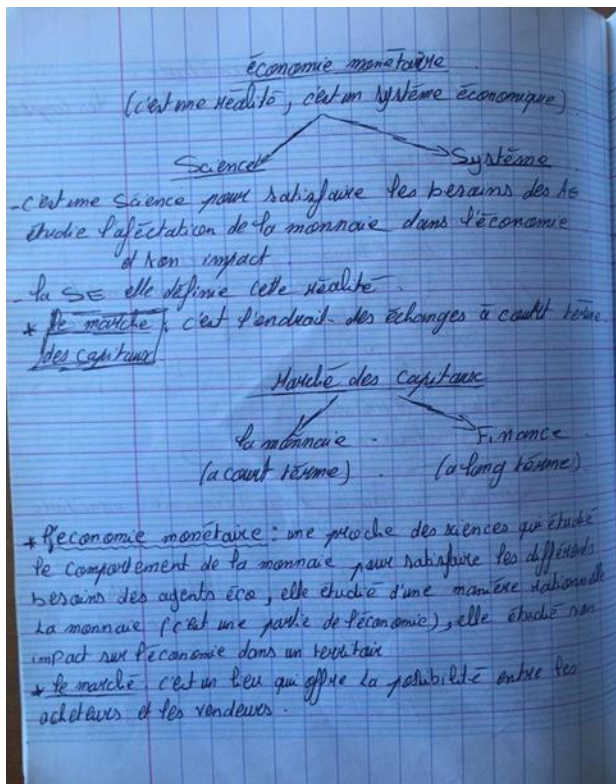 économie monétaire
(c'est une réalité, c'est un système économique)
Science Système
- c'est une science pour satisfaire les besoins des
étudie l'aféctation de la monnaie dans l'économie
et son impact
- la SE elle définie cette réalité.
* le marché : c'est l'endrait des échanges à court térme.
des capitaux
Marché des capitaux
la monnaie. Finance
(a court térme) (a long térme)
* l'economie monétaire : une proche des siences qui étudié
le comportement de la monnaie pour satisfaire les différents
besoins des agents éco, elle étudié d'une manière rationnelle
la monnaie (c'est une partie de l'économie), elle étudié son
impact sur l'économie dans un territair
* le marché c'est un lieu qui offre la posibilité entre les
acheteurs et les vendeurs.